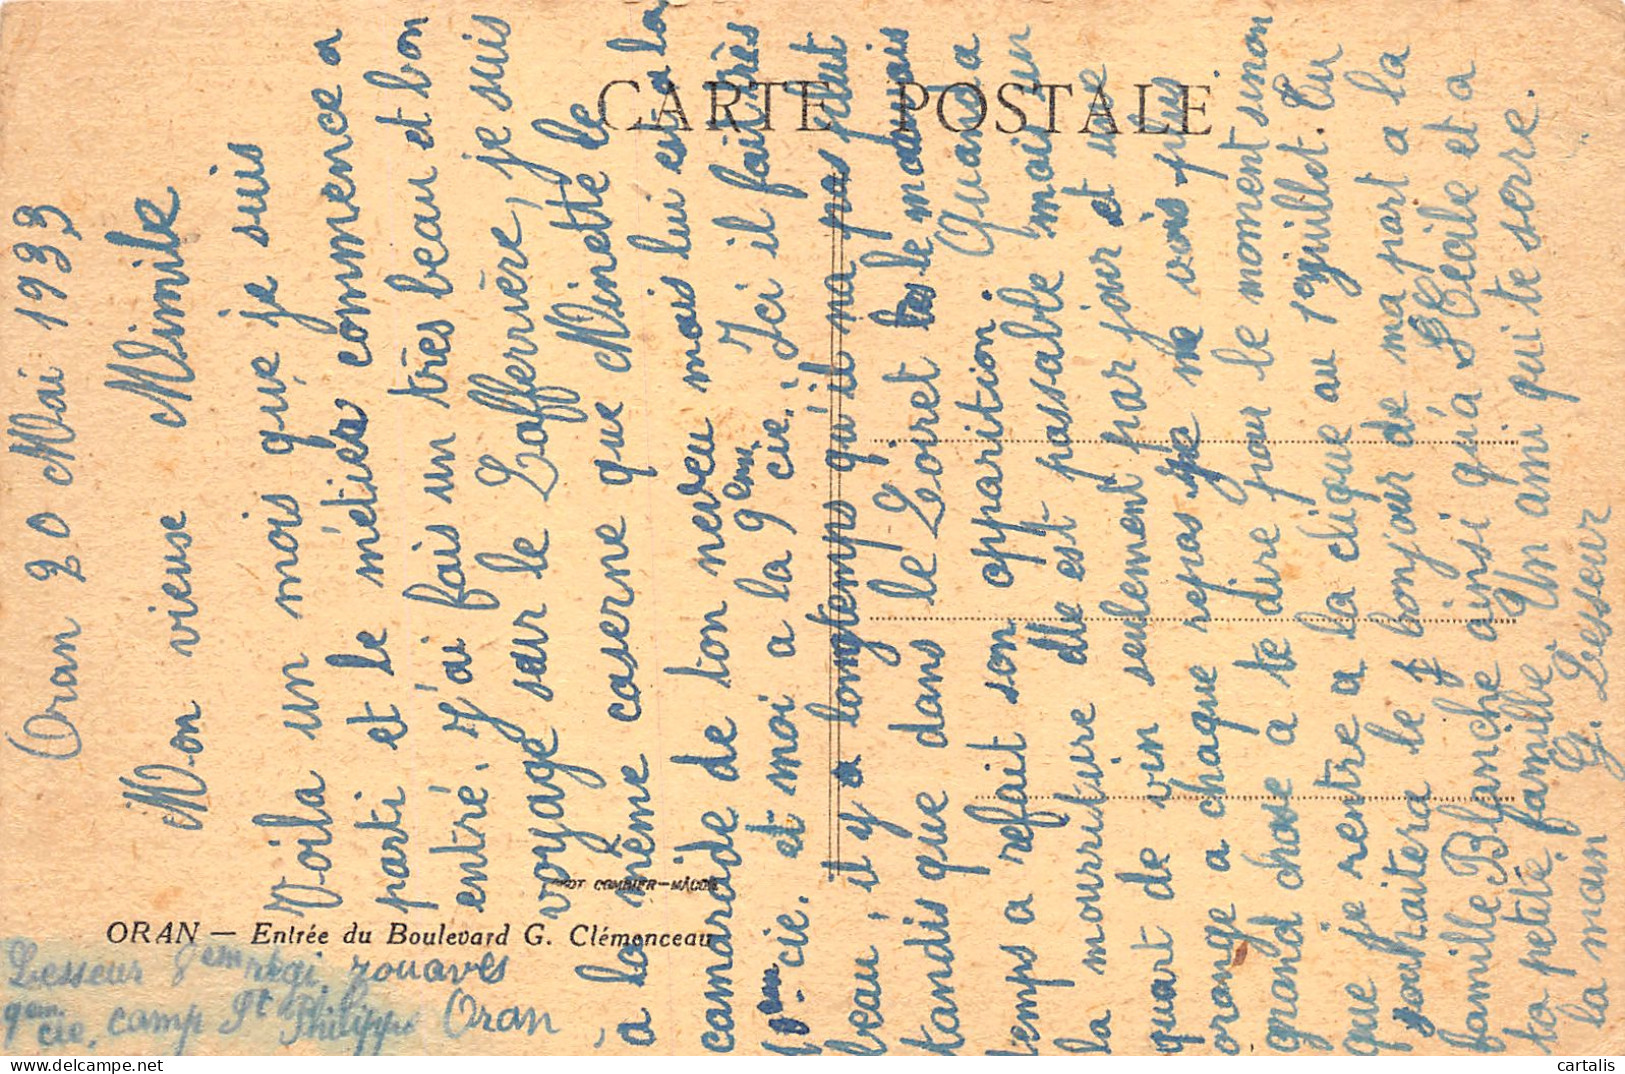 CARTE POSTALE
Oran 20 Mai 1933
Mon vieux Mimile
Voila un mois que je suis
parti et le métier commence a
entré. J'ai fais un très beau et bon
voyage sur le Lafferrière, je suis
à la même caserne que Minette le
camarade de ton neveu mais lui est a la
cie. et moi a la 9ème cie. Ici il fait très
beau, il y a longtemps qu'il na pas plut
tandis que dans le Loiret le mauvais
temps a refait son apparition. Quand a
la nourriture elle est passable mais un
quart de vin seulement par jour et une
orange a chaque repas je ne vois plus
grand chose a te dire pour le moment sinon
que je rentre a la clique au 1er juillet. Tu
souhaitera le bonjour de ma part a la
famille Blanche ainsi qu'a Cécile et a
ta petite famille. Un ami qui te serre
la main G. Lesseur
PHOT COMBIER-MÂCON
ORAN — Entrée du Boulevard G. Clémenceau
Lesseur 8em régi. zouaves
9em cie, camp St Philippe Oran
cartalis